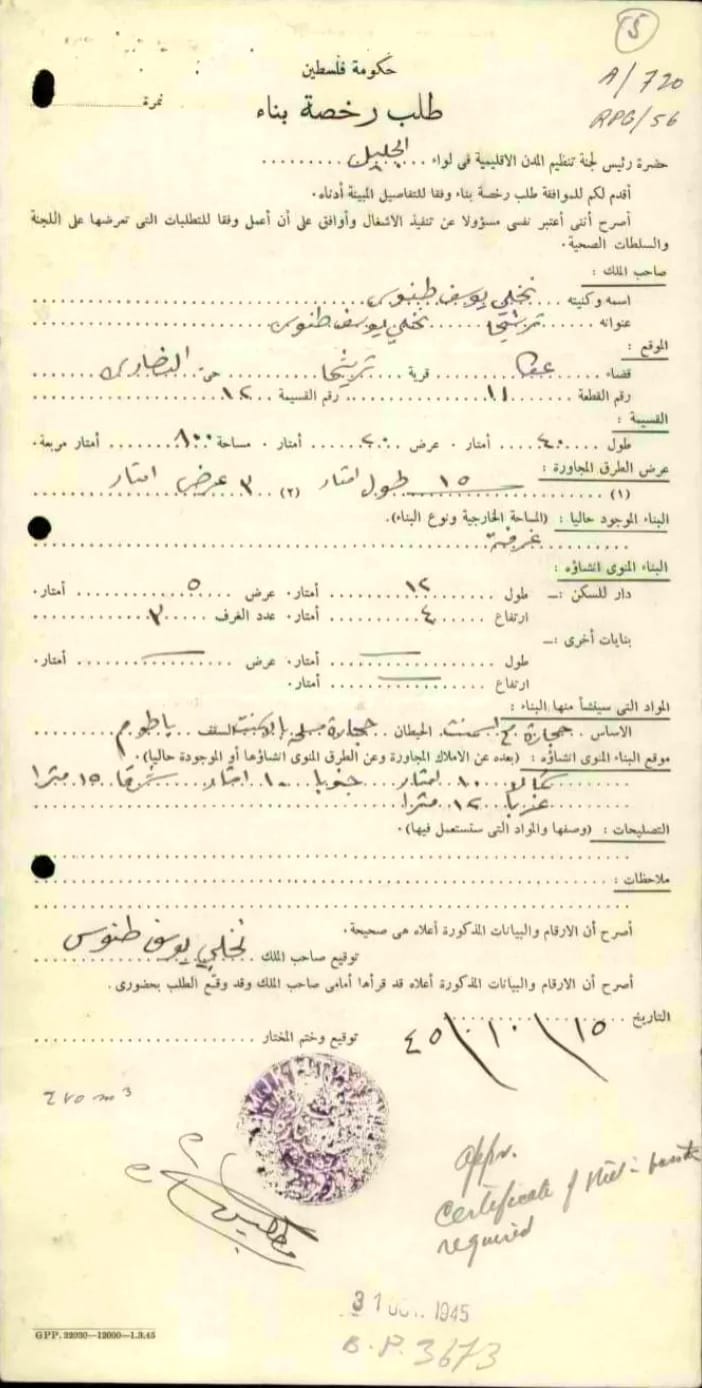 5
A/720
RPG/56
حكومة فلسطين
طلب رخصة بناء
نمرة
حضرة رئيس لجنة تنظيم المدن الاقليمية فى لواء الجليل
أقدم لكم للموافقة طلب رخصة بناء وفقا للتفاصيل المبينة أدناه.
أصرح أننى أعتبر نفسى مسؤولا عن تنفيذ الاشغال وأوافق على أن أعمل وفقا للتطلبات التى تعرضها على اللجنة
والسلطات الصحية.
صاحب الملك :
اسمه وكنيته نخلي يوسف طنوس
عنوانه ترشيحا نخلي يوسف طنوس
الموقع :
قضاء عكا قرية ترشيحا حى
رقم القطعة ١١ رقم القسيمة ١٢
القسيمة :
طول ٤٠ أمتار . عرض ٢٠ أمتار . مساحة ٨٠٠ أمتار مربعة.
عرض الطرق المجاورة :
(١) ١٥ طول امتار (٢) ٣ عرض امتار
البناء الموجود حاليا : (المساحة الخارجية ونوع البناء).
غرفة
البناء المنوى انشاؤه :
دار للسكن :— طول ١٢ أمتار. عرض ٥ أمتار.
ارتفاع ٤ أمتار. عدد الغرف ٣
بنايات أخرى :—
طول — أمتار. عرض — أمتار.
ارتفاع — أمتار.
المواد التى سينشأ منها البناء :
الاساس حجارة مع اسمنت الحيطان حجارة السقف باطوم
موقع البناء المنوى انشاؤه : (بعده عن الاملاك المجاورة وعن الطرق المنوى انشاؤها أو الموجودة حاليا).
شمالا ١٠ امتار جنوبا ١٠ امتار شرقا ١٥ مترا
غربا ١٢ مترا
التصليحات : (وصفها والمواد التى ستستعمل فيها).
ملاحظات :
أصرح أن الارقام والبيانات المذكورة أعلاه هى صحيحة.
توقيع صاحب الملك نخلي يوسف طنوس
أصرح أن الارقام والبيانات المذكورة أعلاه قد قرأها أمامى صاحب الملك وقد وقع الطلب بحضورى.
التاريخ ١٥/١٠/٤٥
توقيع وختم المختار
appr.
Certificate of
required
31 OCT. 1945
B.P. 3673
GPP. 32030—12000—1.3.45